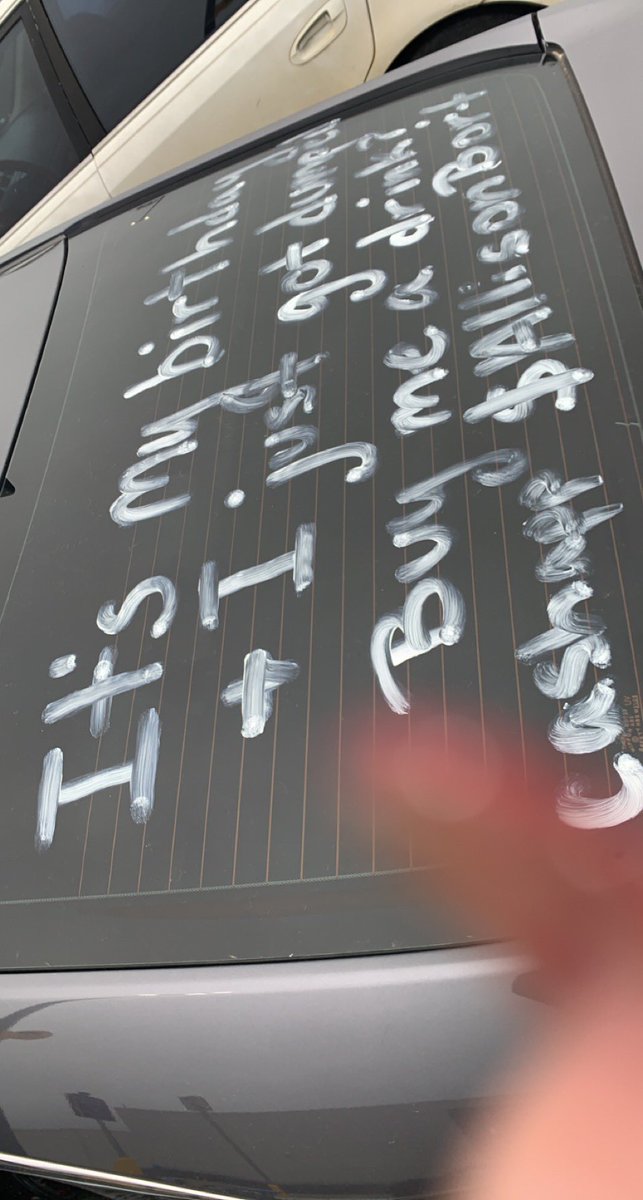 It's my birthday
+ I just got dumped
Buy me a drink?
Cashapp $AllisonBort